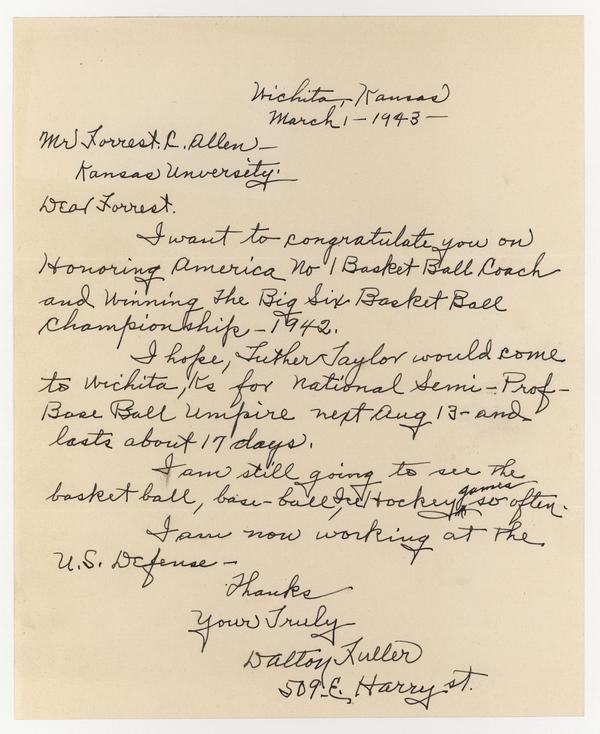 Wichita, Kansas
March 1 - 1943 -
Mr Forrest. C. Allen -
Kansas Unversity.
Dear Forrest.
I want to congratulate you on
Honoring America No 1 Basket Ball Coach
and Winning The Big Six Basket Ball
Championship - 1942.
I hope, Luther Taylor would come
to Wichita, Ks for National Semi - Prof -
Base Ball Umpire next Aug 13 - and
lasts about 17 days.
I am still going to see the
basket ball, base-ball, Ice Hockey games so often.
I am now working at the
U.S. Defense -
Thanks
Your Truly
Dalton Fuller
509 - E. Harry st.